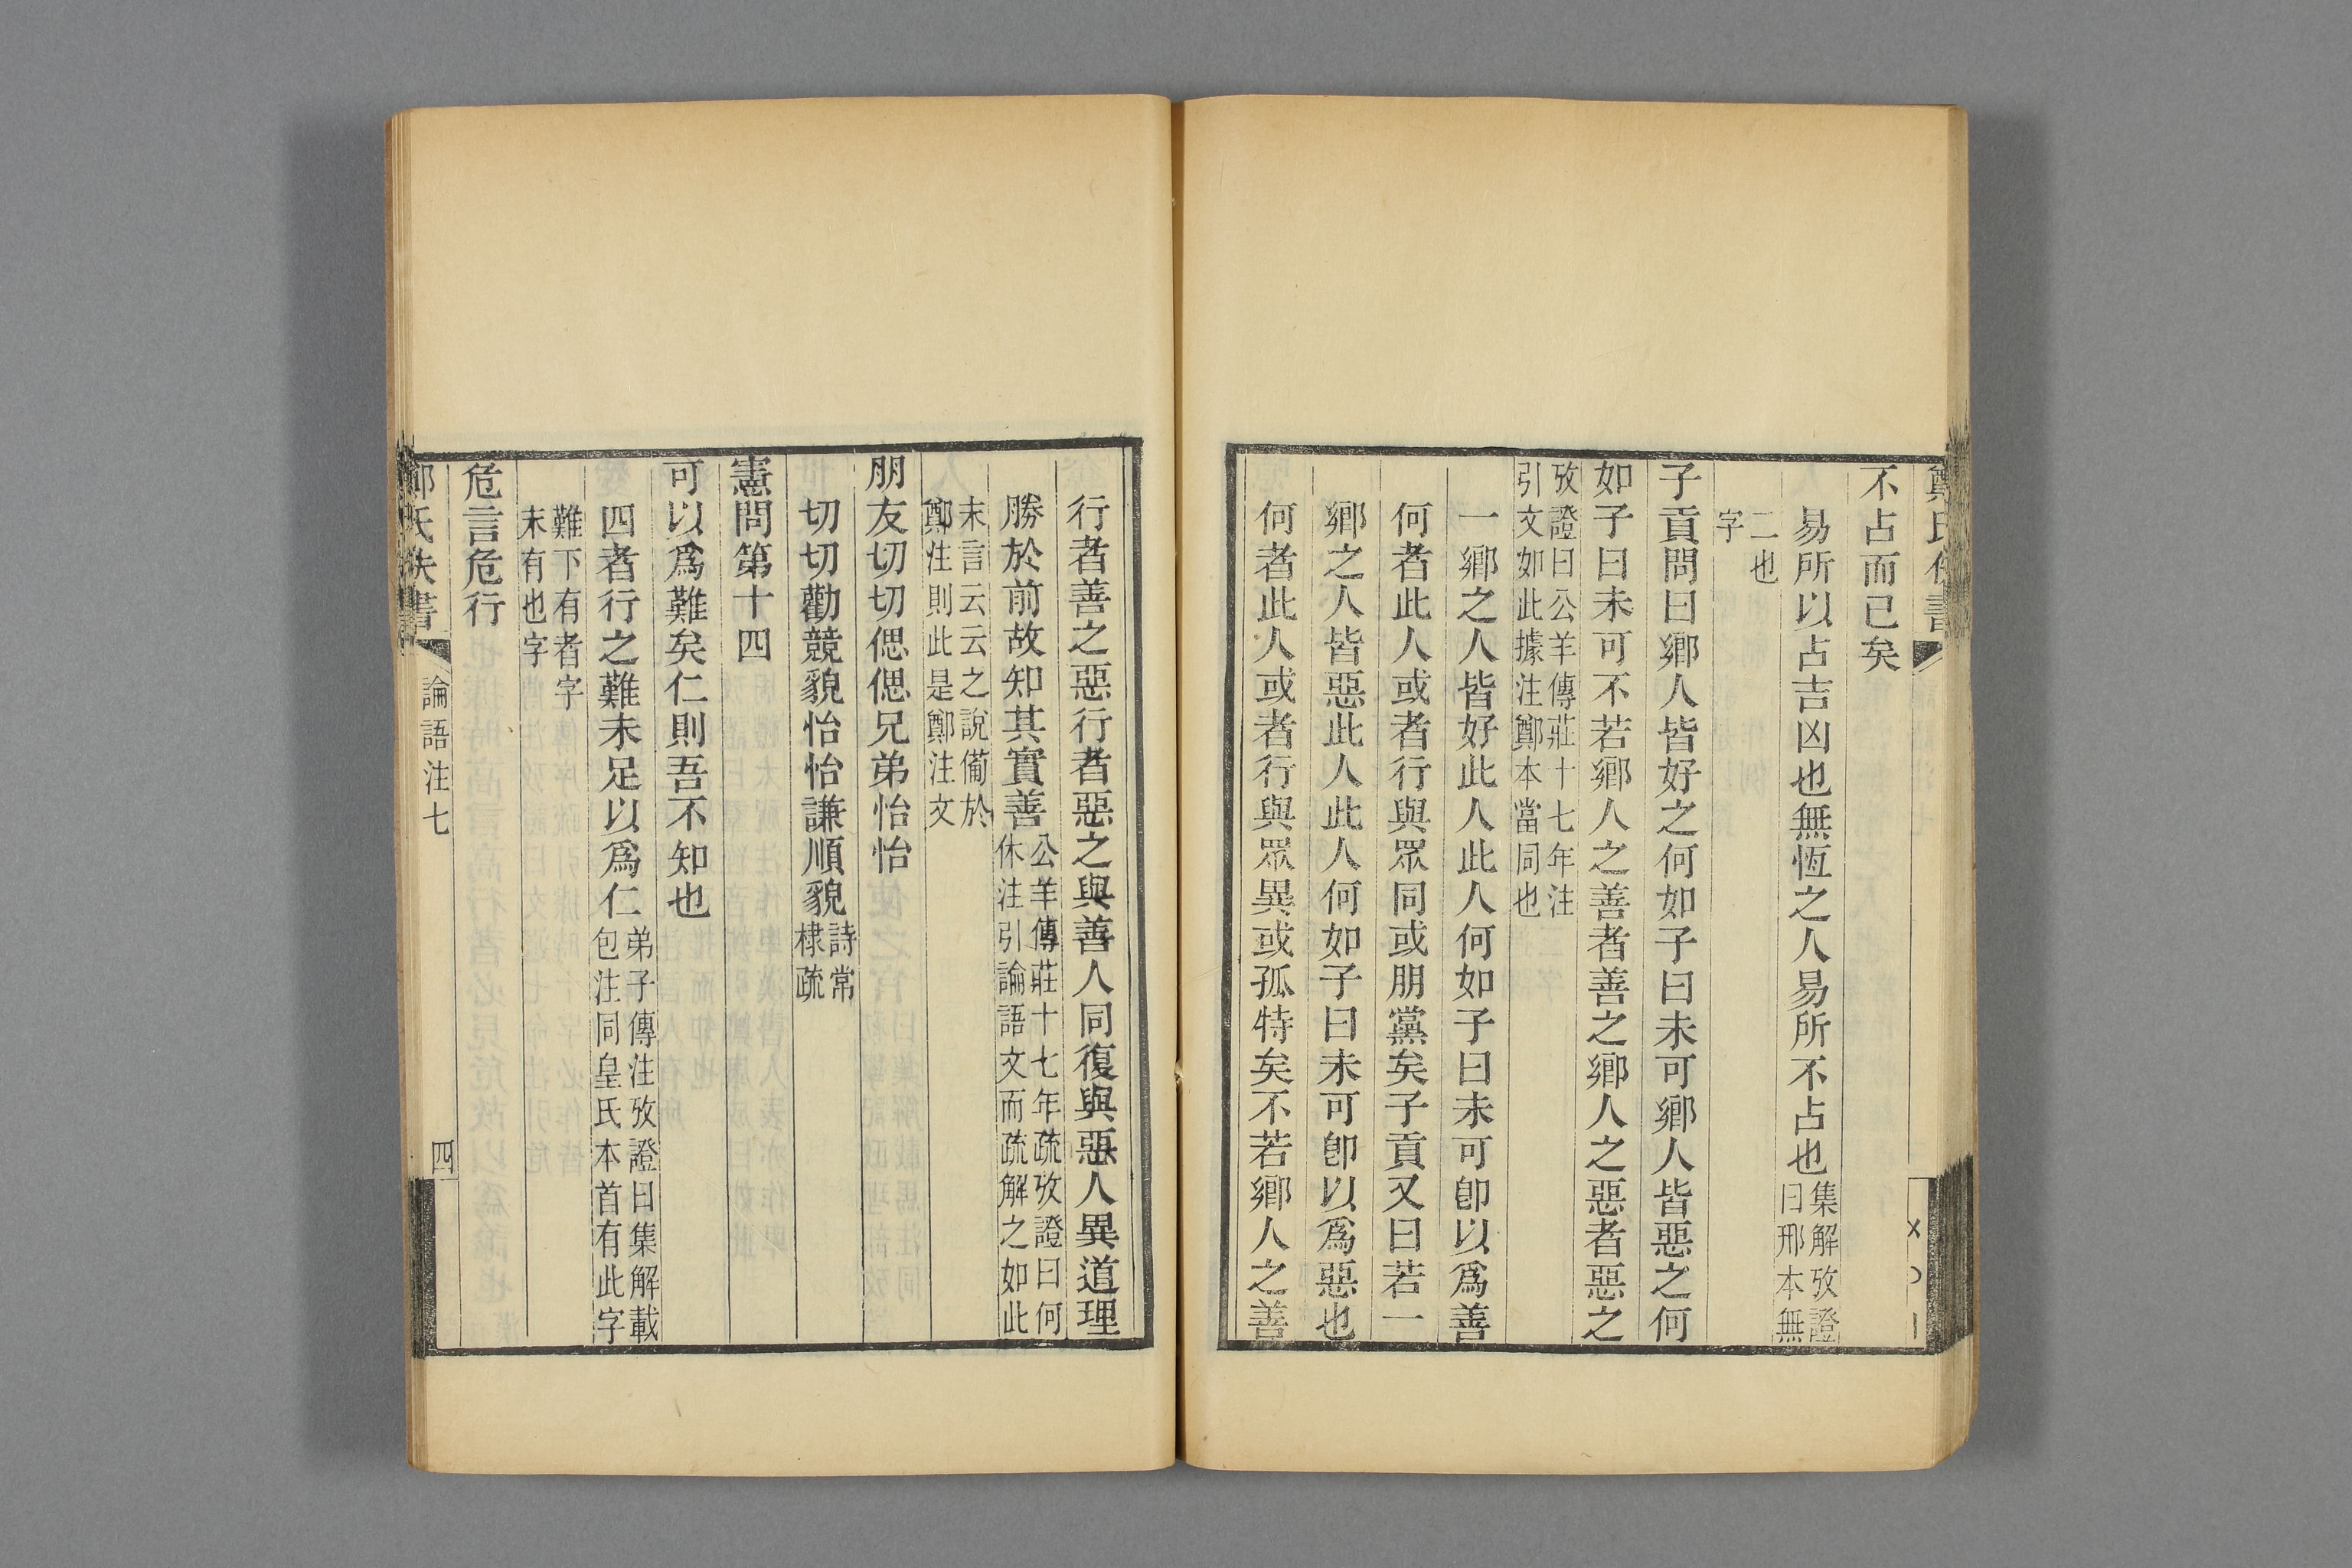 不占而已矣
易所以占吉凶也無恆之人易所不占也集解攷證
曰邢本無
二也
字
子貢問曰鄉人皆好之何如子曰未可鄉人皆惡之何
如子曰未可不若鄉人之善者善之鄉人之惡者惡之
攷證曰公羊傳莊十七年注
引文如此據注鄭本當同也
一鄉之人皆好此人此人何如子曰未可卽以爲善
何者此人或者行與眾同或朋黨矣子貢又曰若一
鄉之人皆惡此人此人何如子曰未可卽以爲惡也
何者此人或者行與眾異或孤特矣不若鄉人之善
行者善之惡行者惡之與善人同復與惡人異道理
勝於前故知其實善公羊傳莊十七年疏攷證曰何
休注引論語文而疏解之如此
末言云云之說備於
鄭注則此是鄭注文
朋友切切偲偲兄弟怡怡
切切勸競貌怡怡謙順貌詩常
棣疏
憲問第十四
可以爲難矣仁則吾不知也
四者行之難未足以爲仁弟子傳注攷證曰集解載
包注同皇氏本首有此字
難下有者字
末有也字
危言危行
氏佚書
論語注七
四